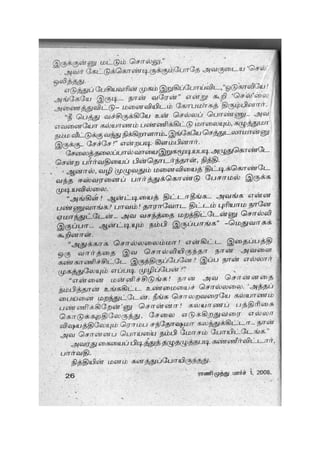 இருக்குன்னு மட்டும் சொல்லு."
அவர் கேட்டுக்கொண்டிருக்கும்போதே அவருடைய 'செல்'
ஒலித்தது.
எடுத்துப் பேசியவரின் முகம் இறுகிப்போய்விட, "ஒடுகாலியே!
அங்கேயே இருடி... நான் வரேன்" என்று கூறி 'செல்'லை
அணைத்துவிட்டு- மனைவியிடம் கோபமாகத் திரும்பினார்.
"நீ பெத்து வச்சிருக்கியே உன் செல்லப் பொண்ணு... அவ
எவனையோ கல்யாணம் பண்ணிக்கிட்டு மாலையும், கழுத்துமா
நம்ம வீட்டுக்கு வந்து நிக்கிறாளாம். இங்கேயே செத்துடலாமான்னு
இருக்கு.. சேச்சே!" என்றபடி கிளம்பினார்.
சேலைத்தலைப்பால் வாயைஇறுகமூடியபடி அழுதுகொண்டே
சென்ற பார்வதியைப் பின்தொடர்ந்தாள், நித்தி.
ஆனால், வழி முழுவதும் மனைவியைத் திட்டிக்கொண்டே
வந்த ஈஸ்வரனைப் பார்த்துக்கொண்டு பேசாமல் இருக்க
முடியவில்லை.
"அங்கிள்! ஆன்ட்டியைத் திட்டாதீங்க.. அவங்க என்ன
பண்ணுவாங்க? பாவம்! தாராவோட திட்டம் புரியாம நானே
ஏமாந்துட்டேன்.. அவ வசந்தை மறந்திட்டேன்னு சொல்லி
இருப்பா... ஆன்ட்டியும் நம்பி இருப்பாங்க" -மெதுவாகக்
கூறினாள்.
"அதுக்காக சொல்லலைம்மா! என்கிட்ட இதைபத்தி
ஒரு வார்த்தை இவ சொல்லியிருந்தா நான் அவளை
கண்காணிச்சிகிட்டே இருந்திருப்பேனே! இப்ப நான் எல்லார்
முகத்துலேயும் எப்படி முழிப்பேன்?"
"என்னை மன்னிச்சிடுங்க! நான் அவ சொன்னதை
நம்பித்தான் உங்ககிட்ட உண்மையைச் சொல்லலை. 'அந்தப்
பையனை மறந்துட்டேன். நீங்க சொல்றவரையே கல்யாணம்
பண்ணிக்கிறேன்'னு சொன்னா! கல்யாணப் பத்திரிகை
கொடுக்கறதிலேருந்து, சேலை எடுக்கிறதுவரை எல்லா
விஷயத்திலேயும் ரொம்ப சந்தோஷமா கலந்துக்கிட்டா... நான்
அவ சொன்னப் பொய்யை நம்பி மோசம் போயிட்டேங்க."
அவரதுகையைப் பிடித்துத்தழுதழுத்தபடி கண்ணீர்விட்டார்,
பார்வதி.
நித்தியின் மனம் கனத்துப்போயிருந்தது.
26 ராணிமுத்து மார்ச் 1, 2008.